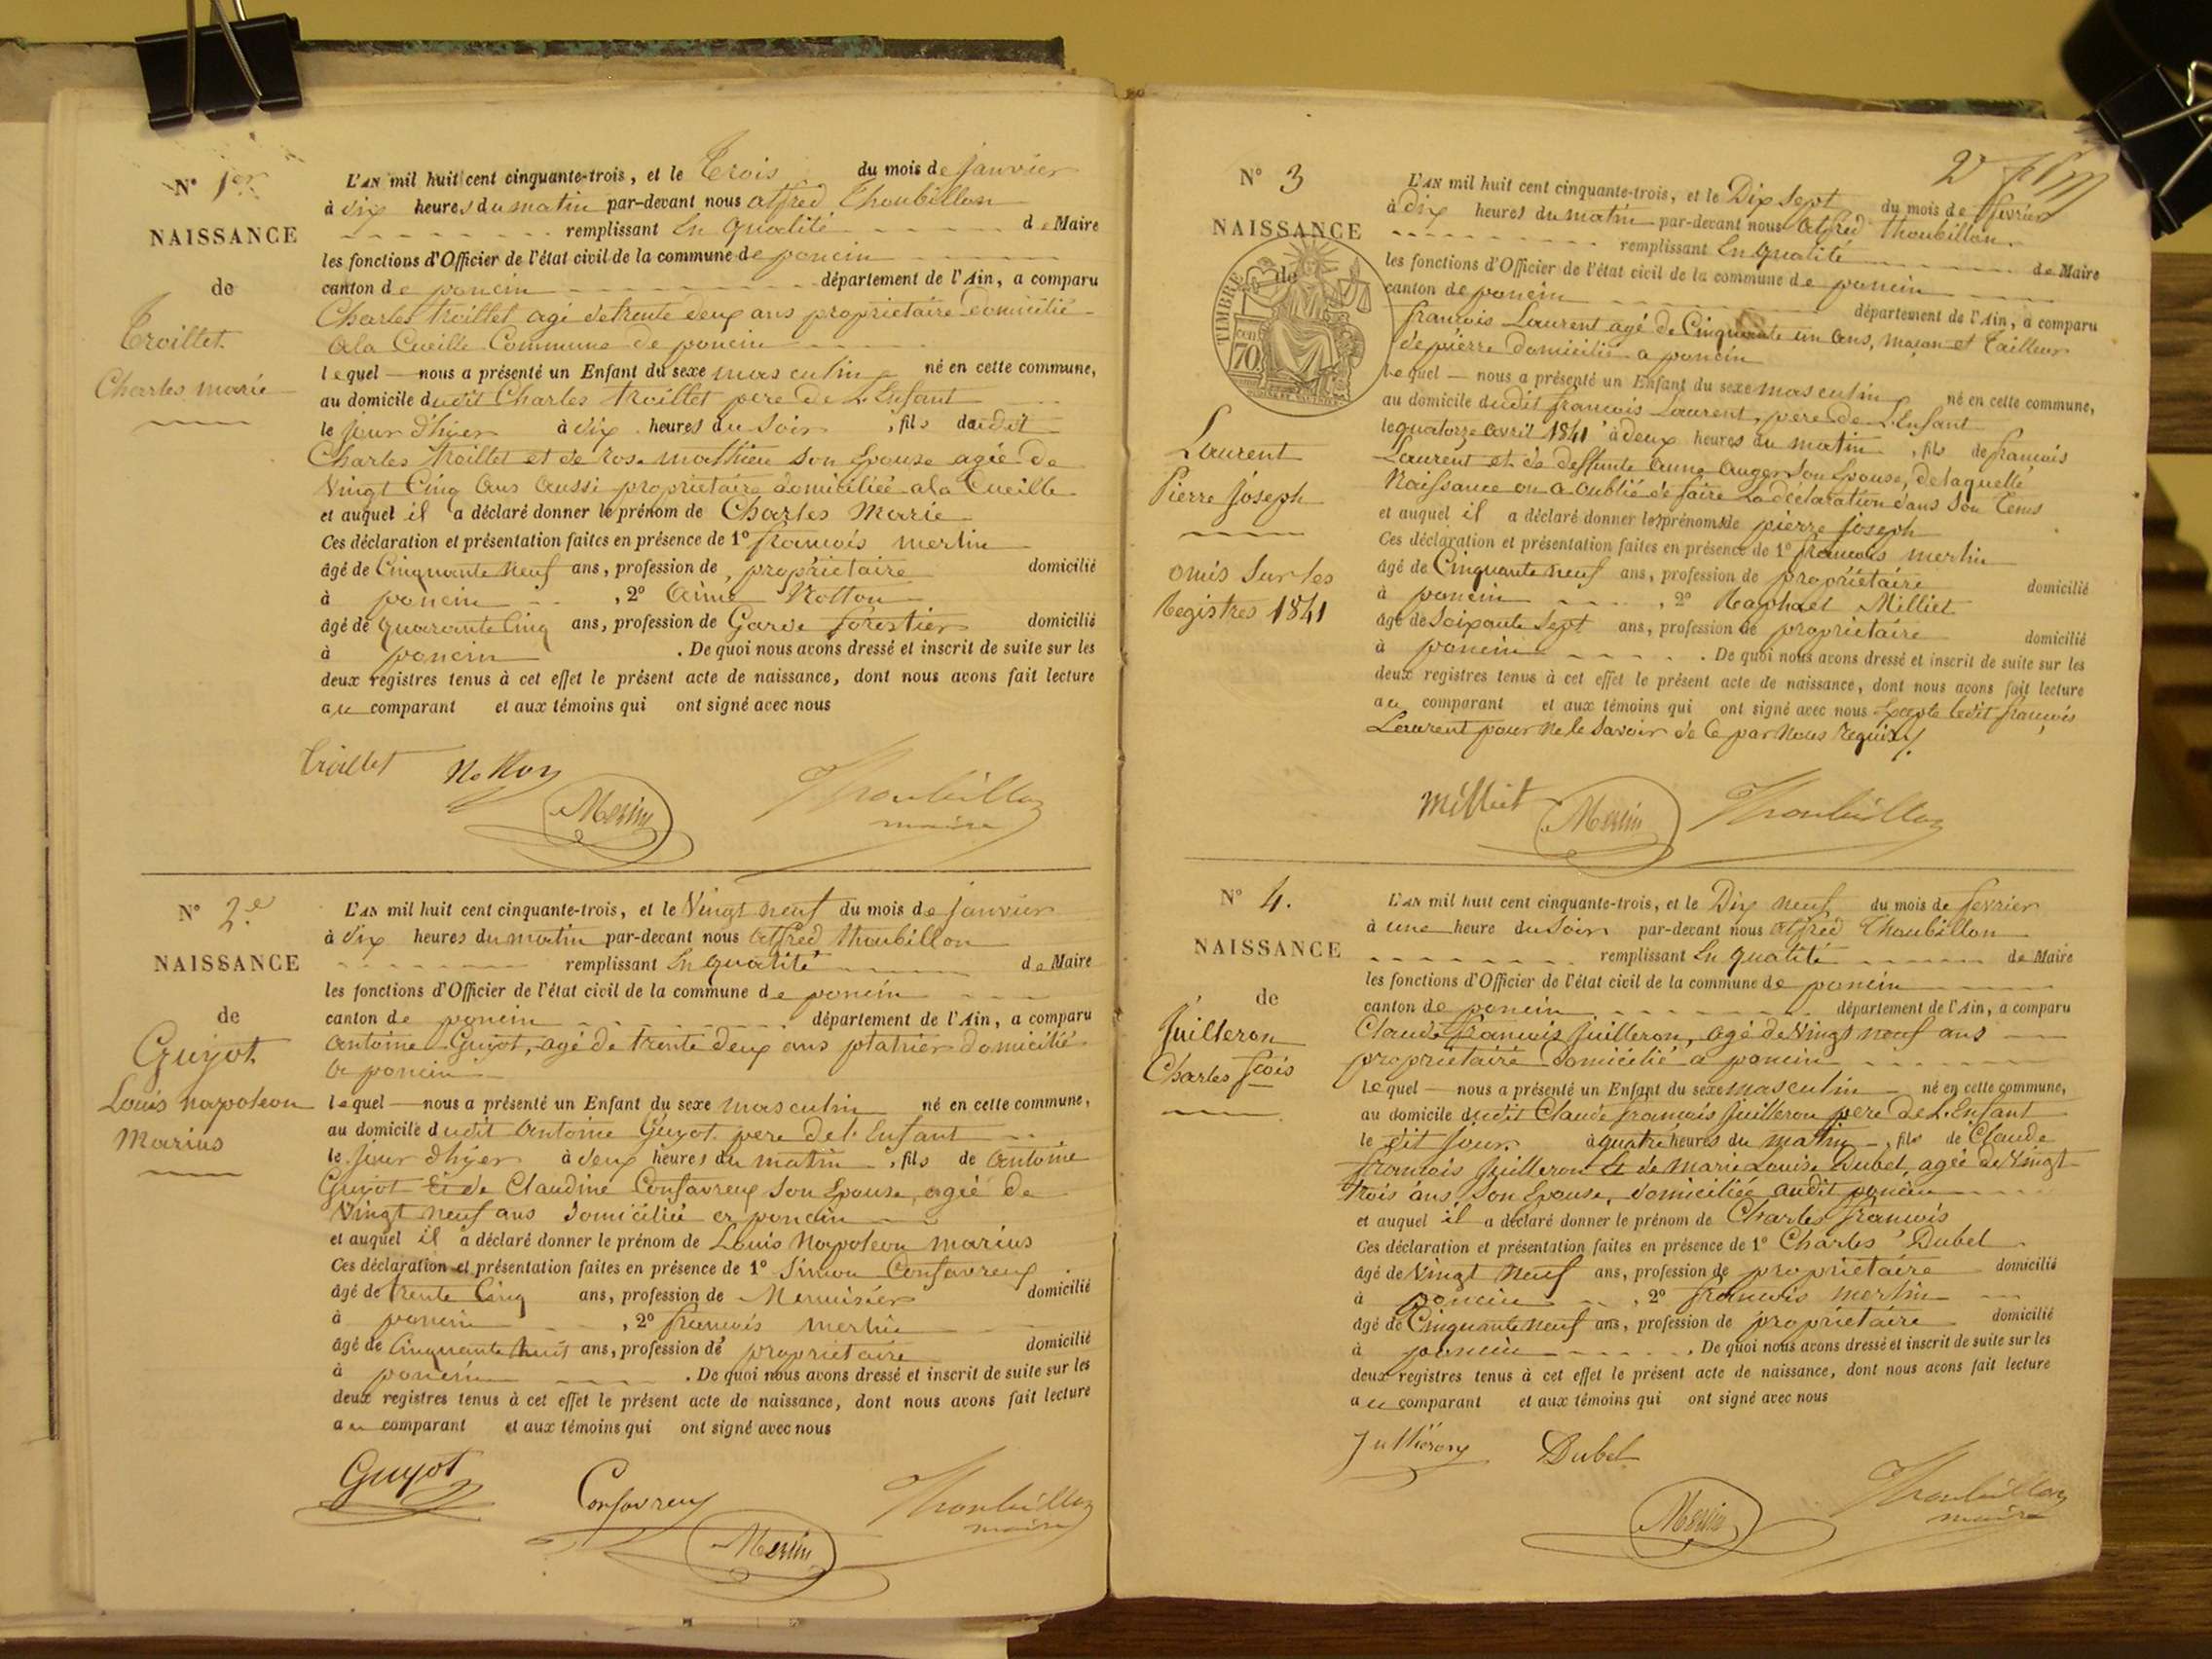 N° 1er
NAISSANCE
de
Troillet
Charles marie
L'AN mil huit cent cinquante-trois, et le Trois du mois de janvier
à dix heures du matin par-devant nous alfred Thoubillon
remplissant En qualité de Maire
les fonctions d'Officier de l'état civil de la commune de poncin
canton de poncin département de l'Ain, a comparu
Charles troillet agé de trente deux ans propriétaire domicilié
a la Cueille Commune de poncin
lequel nous a présenté un Enfant du sexe masculin né en cette commune,
au domicile dudit Charles troillet pere de L'Enfant
le jour d'hyer à dix heures du Soir, fils dudit
Charles troillet et de rose mathieu son Epouse agée de
Vingt Cinq ans aussi propriétaire domiciliée a la Cueille
et auquel il a déclaré donner le prénom de Charles Marie
Ces déclaration et présentation faites en présence de 1° françois merlin
âgé de Cinquante neuf ans, profession de propriétaire domicilié
à poncin, 2° Aimé Notton
âgé de quarante Cinq ans, profession de Garde forestier domicilié
à poncin. De quoi nous avons dressé et inscrit de suite sur les
deux registres tenus à cet effet le présent acte de naissance, dont nous avons fait lecture
au comparant et aux témoins qui ont signé avec nous
Troillet Notton
Merlin Thoubillon
maire
N° 2e
NAISSANCE
de
Guyot
Louis napoleon
Marius
L'AN mil huit cent cinquante-trois, et le Vingt neuf du mois de janvier
à dix heures du matin par-devant nous alfred Thoubillon
remplissant En qualité de Maire
les fonctions d'Officier de l'état civil de la commune de poncin
canton de poncin département de l'Ain, a comparu
antoine Guyot, agé de trente deux ans platrier domicilié
a poncin
lequel nous a présenté un Enfant du sexe masculin né en cette commune,
au domicile dudit antoine Guyot pere de l'Enfant
le jour d'hyer à deux heures du matin, fils de antoine
Guyot Et de Claudine Confavreux son Epouse, agée de
Vingt neuf ans domiciliée a poncin
et auquel il a déclaré donner le prénom de Louis Napoleon marius
Ces déclaration et présentation faites en présence de 1° Simon Confavreux
âgé de trente Cinq ans, profession de Menuisier domicilié
à poncin, 2° françois merlin
âgé de Cinquante huit ans, profession de propriétaire domicilié
à poncin. De quoi nous avons dressé et inscrit de suite sur les
deux registres tenus à cet effet le présent acte de naissance, dont nous avons fait lecture
au comparant et aux témoins qui ont signé avec nous
Guyot Confavreux Thoubillon
Merlin maire
2
N° 3
NAISSANCE
de
TIMBRE
70
Laurent
Pierre Joseph
omis sur les
Registres 1841
L'AN mil huit cent cinquante-trois, et le Dix Sept du mois de fevrier
à dix heures du matin par-devant nous alfred Thoubillon
remplissant En qualité de Maire
les fonctions d'Officier de l'état civil de la commune de poncin
canton de poncin département de l'Ain, a comparu
françois Laurent agé de Cinquante un ans, maçon et tailleur
de pierre domicilié a poncin
lequel nous a présenté un Enfant du sexe masculin né en cette commune,
au domicile dudit françois Laurent, pere de L'Enfant
le quatorze avril 1841 à deux heures du matin, fils de françois
Laurent et de deffunte anne auger son Epouse, de laquelle
Naissance on a oublié de faire la déclaration dans son tems
et auquel il a déclaré donner les prénoms de pierre joseph
Ces déclaration et présentation faites en présence de 1° françois merlin
âgé de Cinquante neuf ans, profession de propriétaire domicilié
à poncin, 2° Raphael Milliet
âgé de Soixante Sept ans, profession de propriétaire domicilié
à poncin. De quoi nous avons dressé et inscrit de suite sur les
deux registres tenus à cet effet le présent acte de naissance, dont nous avons fait lecture
au comparant et aux témoins qui ont signé avec nous Excepté ledit françois
Laurent pour ne le savoir de ce par nous requis
Milliet Merlin Thoubillon
N° 4.
NAISSANCE
de
Juilleron
Charles fcois
L'AN mil huit cent cinquante-trois, et le Dix neuf du mois de fevrier
à une heure du Soir par-devant nous alfred Thoubillon
remplissant En qualité de Maire
les fonctions d'Officier de l'état civil de la commune de poncin
canton de poncin département de l'Ain, a comparu
Claude françois Juilleron, agé de Vingt neuf ans
propriétaire domicilié a poncin
lequel nous a présenté un Enfant du sexe masculin né en cette commune,
au domicile dudit Claude françois Juilleron pere de L'Enfant
le dit jour à quatre heures du matin, fils de Claude
françois Juilleron Et de Marie Louise Dubel, agée de Vingt
trois ans, son Epouse, domiciliée audit poncin
et auquel il a déclaré donner le prénom de Charles françois
Ces déclaration et présentation faites en présence de 1° Charles Dubel
âgé de Vingt neuf ans, profession de propriétaire domicilié
à poncin, 2° françois merlin
âgé de Cinquante neuf ans, profession de propriétaire domicilié
à poncin. De quoi nous avons dressé et inscrit de suite sur les
deux registres tenus à cet effet le présent acte de naissance, dont nous avons fait lecture
au comparant et aux témoins qui ont signé avec nous
Juilleron Dubel
Merlin Thoubillon
maire